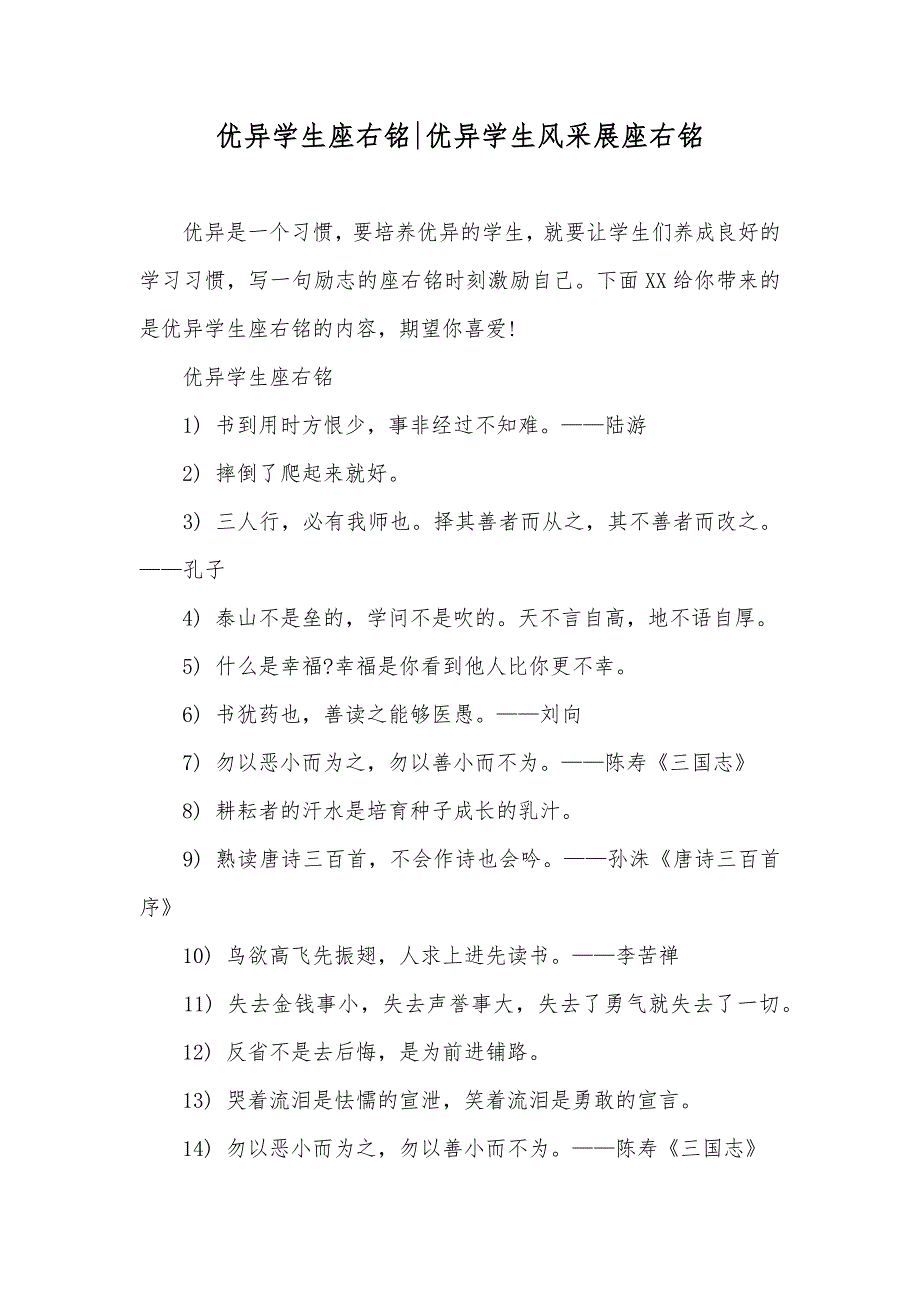 优异学生座右铭|优异学生风采展座右铭
优异是一个习惯，要培养优异的学生，就要让学生们养成良好的
学习习惯，写一句励志的座右铭时刻激励自己。下面 XX 给你带来的
是优异学生座右铭的内容，期望你喜爱!
优异学生座右铭
1) 书到用时方恨少，事非经过不知难。——陆游
2) 摔倒了爬起来就好。
3) 三人行，必有我师也。择其善者而从之，其不善者而改之。
——孔子
4) 泰山不是垒的，学问不是吹的。天不言自高，地不语自厚。
5) 什么是幸福?幸福是你看到他人比你更不幸。
6) 书犹药也，善读之能够医愚。——刘向
7) 勿以恶小而为之，勿以善小而不为。——陈寿《三国志》
8) 耕耘者的汗水是培育种子成长的乳汁。
9) 熟读唐诗三百首，不会作诗也会吟。——孙洙《唐诗三百首
序》
10) 鸟欲高飞先振翅，人求上进先读书。——李苦禅
11) 失去金钱事小，失去声誉事大，失去了勇气就失去了一切。
12) 反省不是去后悔，是为前进铺路。
13) 哭着流泪是怯懦的宣泄，笑着流泪是勇敢的宣言。
14) 勿以恶小而为之，勿以善小而不为。——陈寿《三国志》